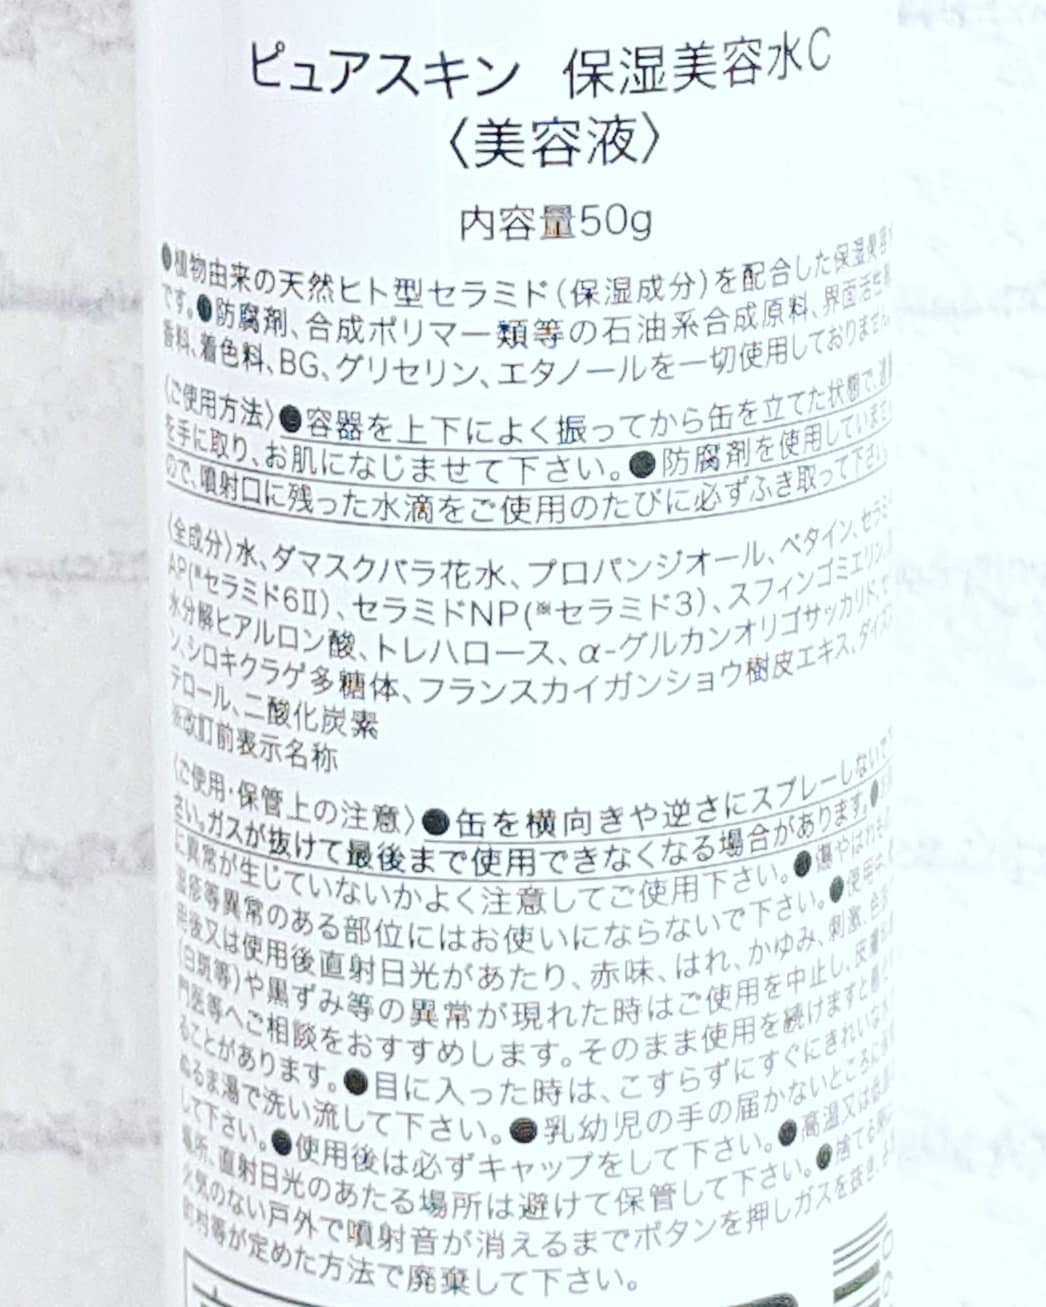 ピュアスキン 保湿美容水C
〈美容液〉
内容量50g
●植物由来の天然ヒト型セラミド(保湿成分)を配合した保湿美容
です。●防腐剤、合成ポリマー類等の石油系合成原料、界面活性
香料、着色料、BG、グリセリン、エタノールを一切使用しておりません
〈ご使用方法〉●容器を上下によく振ってから缶を立てた状態で、適
を手に取り、お肌になじませて下さい。●防腐剤を使用していませ
ので、噴射口に残った水滴をご使用のたびに必ずふき取って下さい
〈全成分〉水、ダマスクバラ花水、プロパンジオール、ベタイン、セラミ
AP(※セラミド6Ⅱ)、セラミドNP(※セラミド3)、スフィンゴミエリン、
水分解ヒアルロン酸、トレハロース、α-グルカンオリゴサッカリド、
ン、シロキクラゲ多糖体、フランスカイガンショウ樹皮エキス、ダイズ
テロール、二酸化炭素
※改訂前表示名称
〈ご使用・保管上の注意〉●缶を横向きや逆さにスプレーしないで
さい。ガスが抜けて最後まで使用できなくなる場合があります。●
に異常が生じていないかよく注意してご使用下さい。●傷やはれもの
湿疹等異常のある部位にはお使いにならないで下さい。●使用
使後又は使用後直射日光があたり、赤味、はれ、かゆみ、刺激、色
(白斑等)や黒ずみ等の異常が現れた時はご使用を中止し、皮膚
門医等へご相談をおすすめします。そのまま使用を続けますと
ることがあります。●目に入った時は、こすらずにすぐにきれいな
ぬるま湯で洗い流して下さい。●乳幼児の手の届かないところに
して下さい。●使用後は必ずキャップをして下さい。●高温又は低
場所、直射日光のあたる場所は避けて保管して下さい。●捨てる
火気のない戸外で噴射音が消えるまでボタンを押しガスを抜き、
町村等が定めた方法で廃棄して下さい。